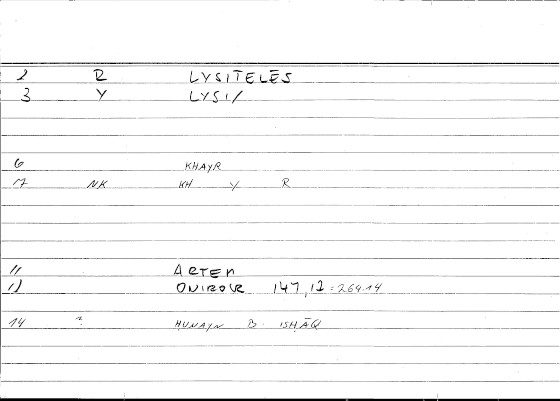 2 R LYSITELĒS
3 Y LYSI/
6 KHAYR
17 NK KH Y R
11 ARTEM
12 ONIROCR 147,12 = 264.14
14 ? ḤUNAYN B. ISḤĀQ